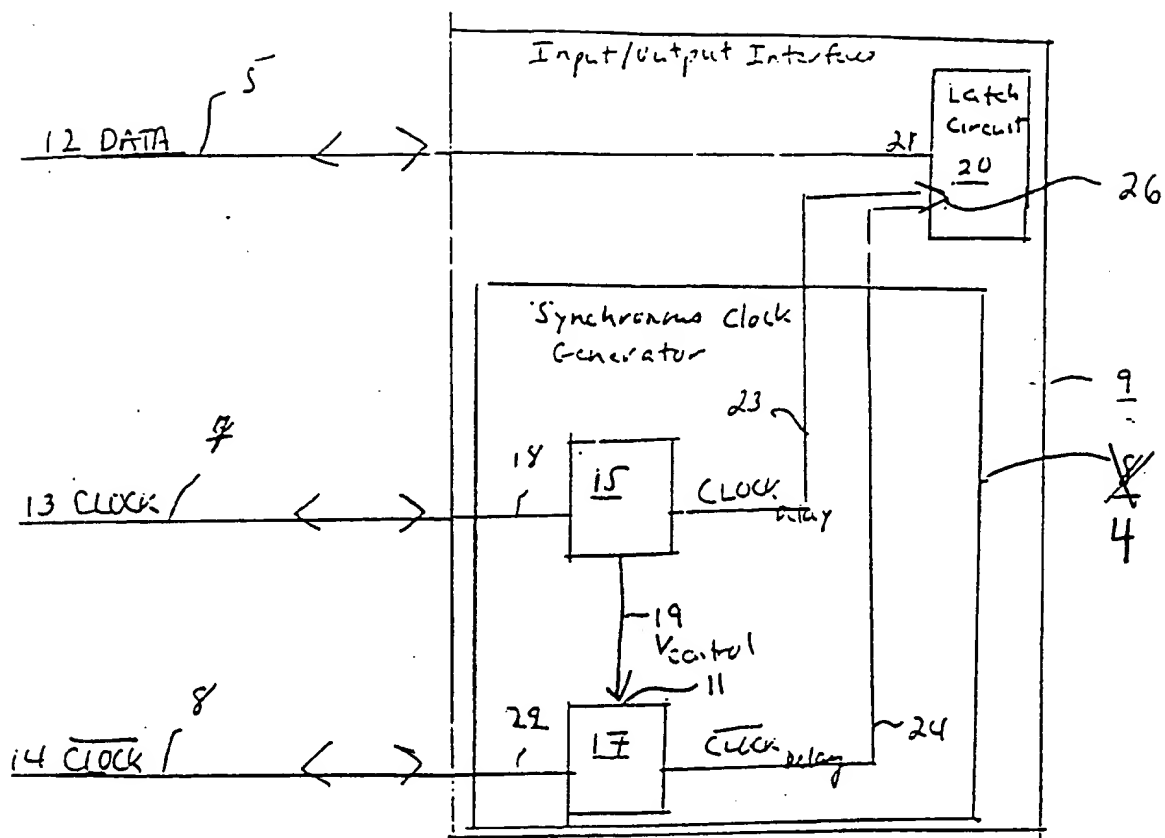 Input/Output Interface
5
Latch
Circuit
20
12 DATA
21
26
Synchronous Clock
Generator
9
23
7
18
15
13 CLOCK
CLOCK Delay
4
19
Vcontrol
11
8
22
17
24
14 CLOCK
CLOCK Delay